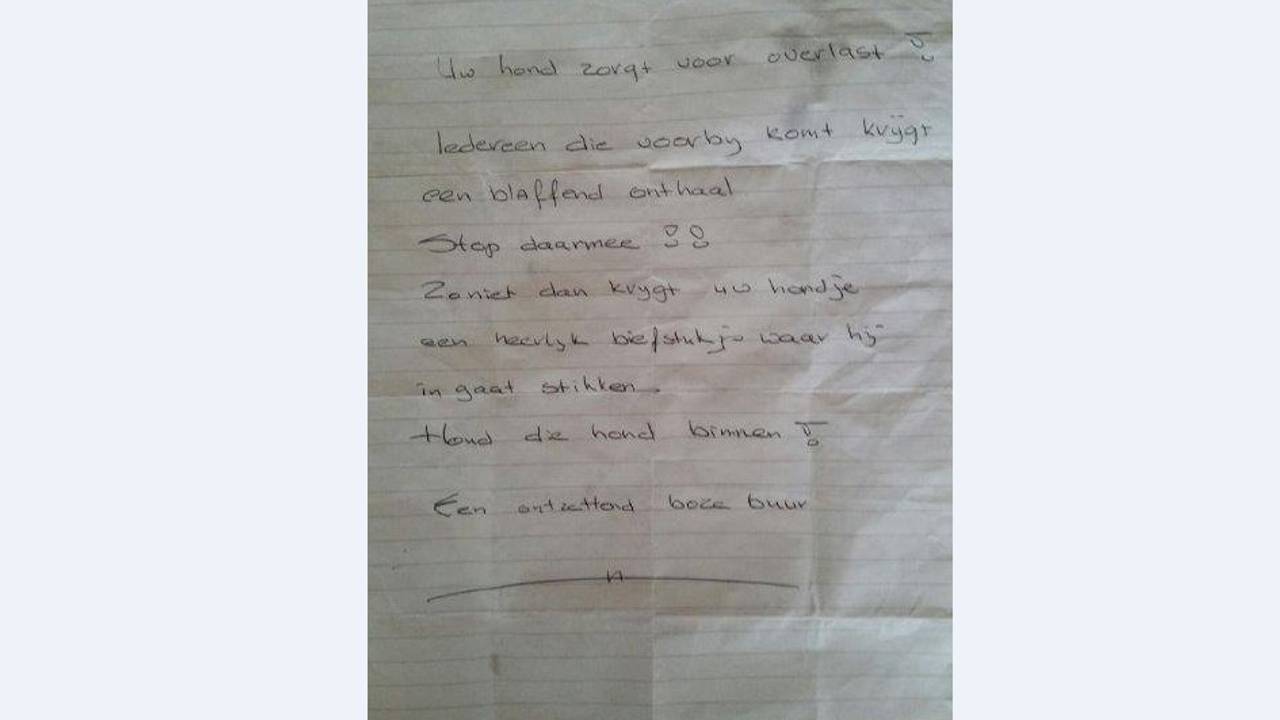 Uw hond zorgt voor overlast !
Iedereen die voorby komt krijgt
een blaffend onthaal
Stop daarmee !!
Zoniet dan krygt uw hondje
een heerlyk biefstukje waar hij
in gaat stikken.
Houd die hond binnen !
Een ontzettend boze buur